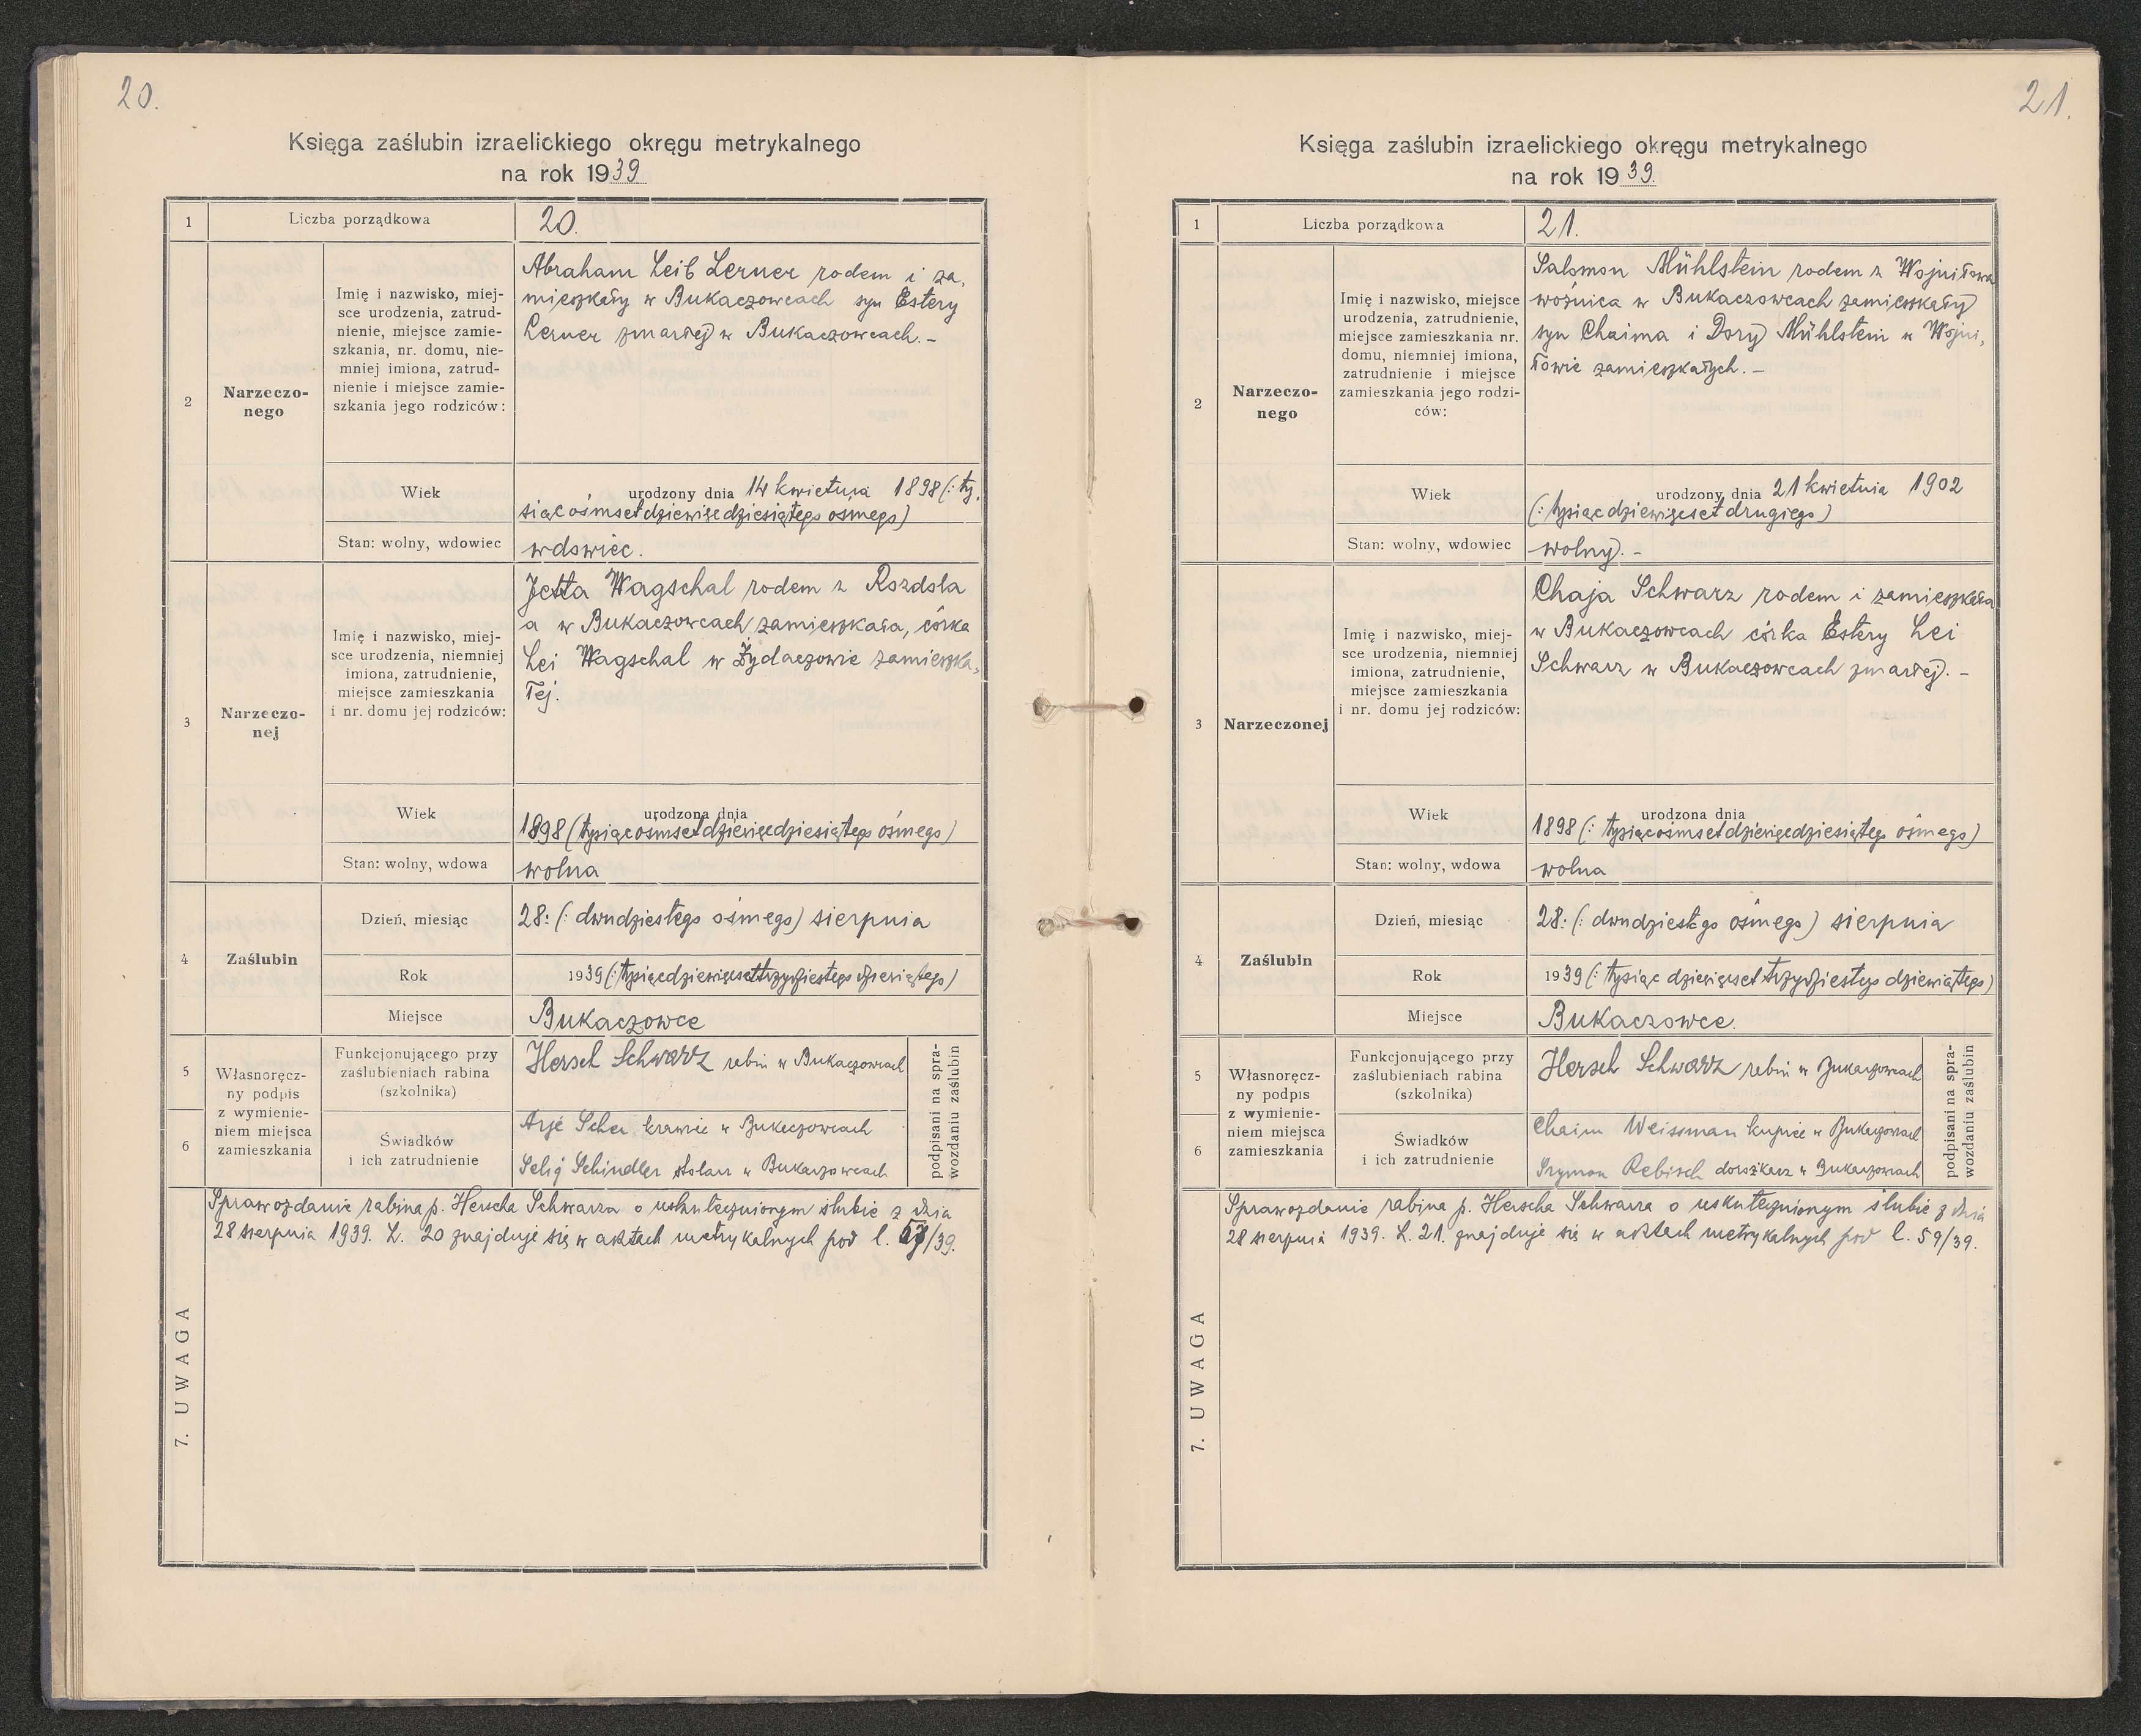 20.
Księga zaślubin izraelickiego okręgu metrykalnego
na rok 1939
1
Liczba porządkowa
20.
2
Narzeczo-
nego
Imię i nazwisko, miej-
sce urodzenia, zatrud-
nienie, miejsce zamie-
szkania, nr. domu, nie-
mniej imiona, zatrud-
nienie i miejsce zamie-
szkania jego rodziców:
Abraham Leib Lerner rodem i za,
mieszkały w Bukaczowcach syn Estery
Lerner zmarłej w Bukaczowcach. –
Wiek
urodzony dnia 14 kwietnia 1898 (: ty,
siąc ośmset dziewięćdziesiątego ósmego)
Stan: wolny, wdowiec
wdowiec.
3
Narzeczo-
nej
Imię i nazwisko, miej-
sce urodzenia, niemniej
imiona, zatrudnienie,
miejsce zamieszkania
i nr. domu jej rodziców:
Jetta Wagschal rodem z Rozdoła
a w Bukaczowcach zamieszkała, córka
Lei Wagschal w Żydaczowie zamieszka,
łej.
Wiek
urodzona dnia
1898 (tysiąc ośmset dziewięćdziesiątego ósmego)
Stan: wolny, wdowa
wolna
4
Zaślubin
Dzień, miesiąc
28: (: dwudziestego ósmego) sierpnia
Rok
1939 (: tysiąc dziewięćset trzydziestego dziewiątego)
Miejsce
Bukaczowce
5
6
Własnoręcz-
ny podpis
z wymienie-
niem miejsca
zamieszkania
Funkcjonującego przy
zaślubieniach rabina
(szkolnika)
Hersch Schwarz rabin w Bukaczowcach
Świadków
i ich zatrudnienie
Arje Scher krawiec w Bukaczowcach
Selig Schindler stolarz w Bukaczowcach
podpisani na spra-
wozdaniu zaślubin
7. UWAGA
Sprawozdanie rabina p. Herscha Schwarza o uskutecznionym ślubie z dnia
28 sierpnia 1939. L. 20 znajduje się w aktach metrykalnych pod l. /39.
21.
Księga zaślubin izraelickiego okręgu metrykalnego
na rok 1939.
1
Liczba porządkowa
21.
2
Narzeczo-
nego
Imię i nazwisko, miejsce
urodzenia, zatrudnienie,
miejsce zamieszkania nr.
domu, niemniej imiona,
zatrudnienie i miejsce
zamieszkania jego rodzi-
ców:
Salomon Mühlstein rodem z Wojniłowa
woźnica w Bukaczowcach zamieszkały
syn Chaima i Dory Mühlstein w Wojni,
łowie zamieszkałych. –
Wiek
urodzony dnia 21 kwietnia 1902
(: tysiąc dziewięćset drugiego)
Stan: wolny, wdowiec
wolny. –
3
Narzeczonej
Imię i nazwisko, miej-
sce urodzenia, niemniej
imiona, zatrudnienie,
miejsce zamieszkania
i nr. domu jej rodziców:
Chaja Schwarz rodem i zamieszkała
w Bukaczowcach córka Estery Lei
Schwarz w Bukaczowcach zmarłej. –
Wiek
urodzona dnia
1898 (: tysiąc ośmset dziewięćdziesiątego ósmego)
Stan: wolny, wdowa
wolna
4
Zaślubin
Dzień, miesiąc
28: (: dwudziestego ósmego) sierpnia
Rok
1939 (: tysiąc dziewięćset trzydziestego dziewiątego)
Miejsce
Bukaczowce.
5
6
Własnoręcz-
ny podpis
z wymienie-
niem miejsca
zamieszkania
Funkcjonującego przy
zaślubieniach rabina
(szkolnika)
Hersch Schwarz rabin w Bukaczowcach
Świadków
i ich zatrudnienie
Chaim Weissman kupiec w Bukaczowcach
Szymon Rebisch dorożkarz w Bukaczowcach
podpisani na spra-
wozdaniu zaślubin
7. UWAGA
Sprawozdanie rabina p. Herscha Schwarza o uskutecznionym ślubie z dnia
28 sierpnia 1939. L. 21. znajduje się w aktach metrykalnych pod l. 59/39.